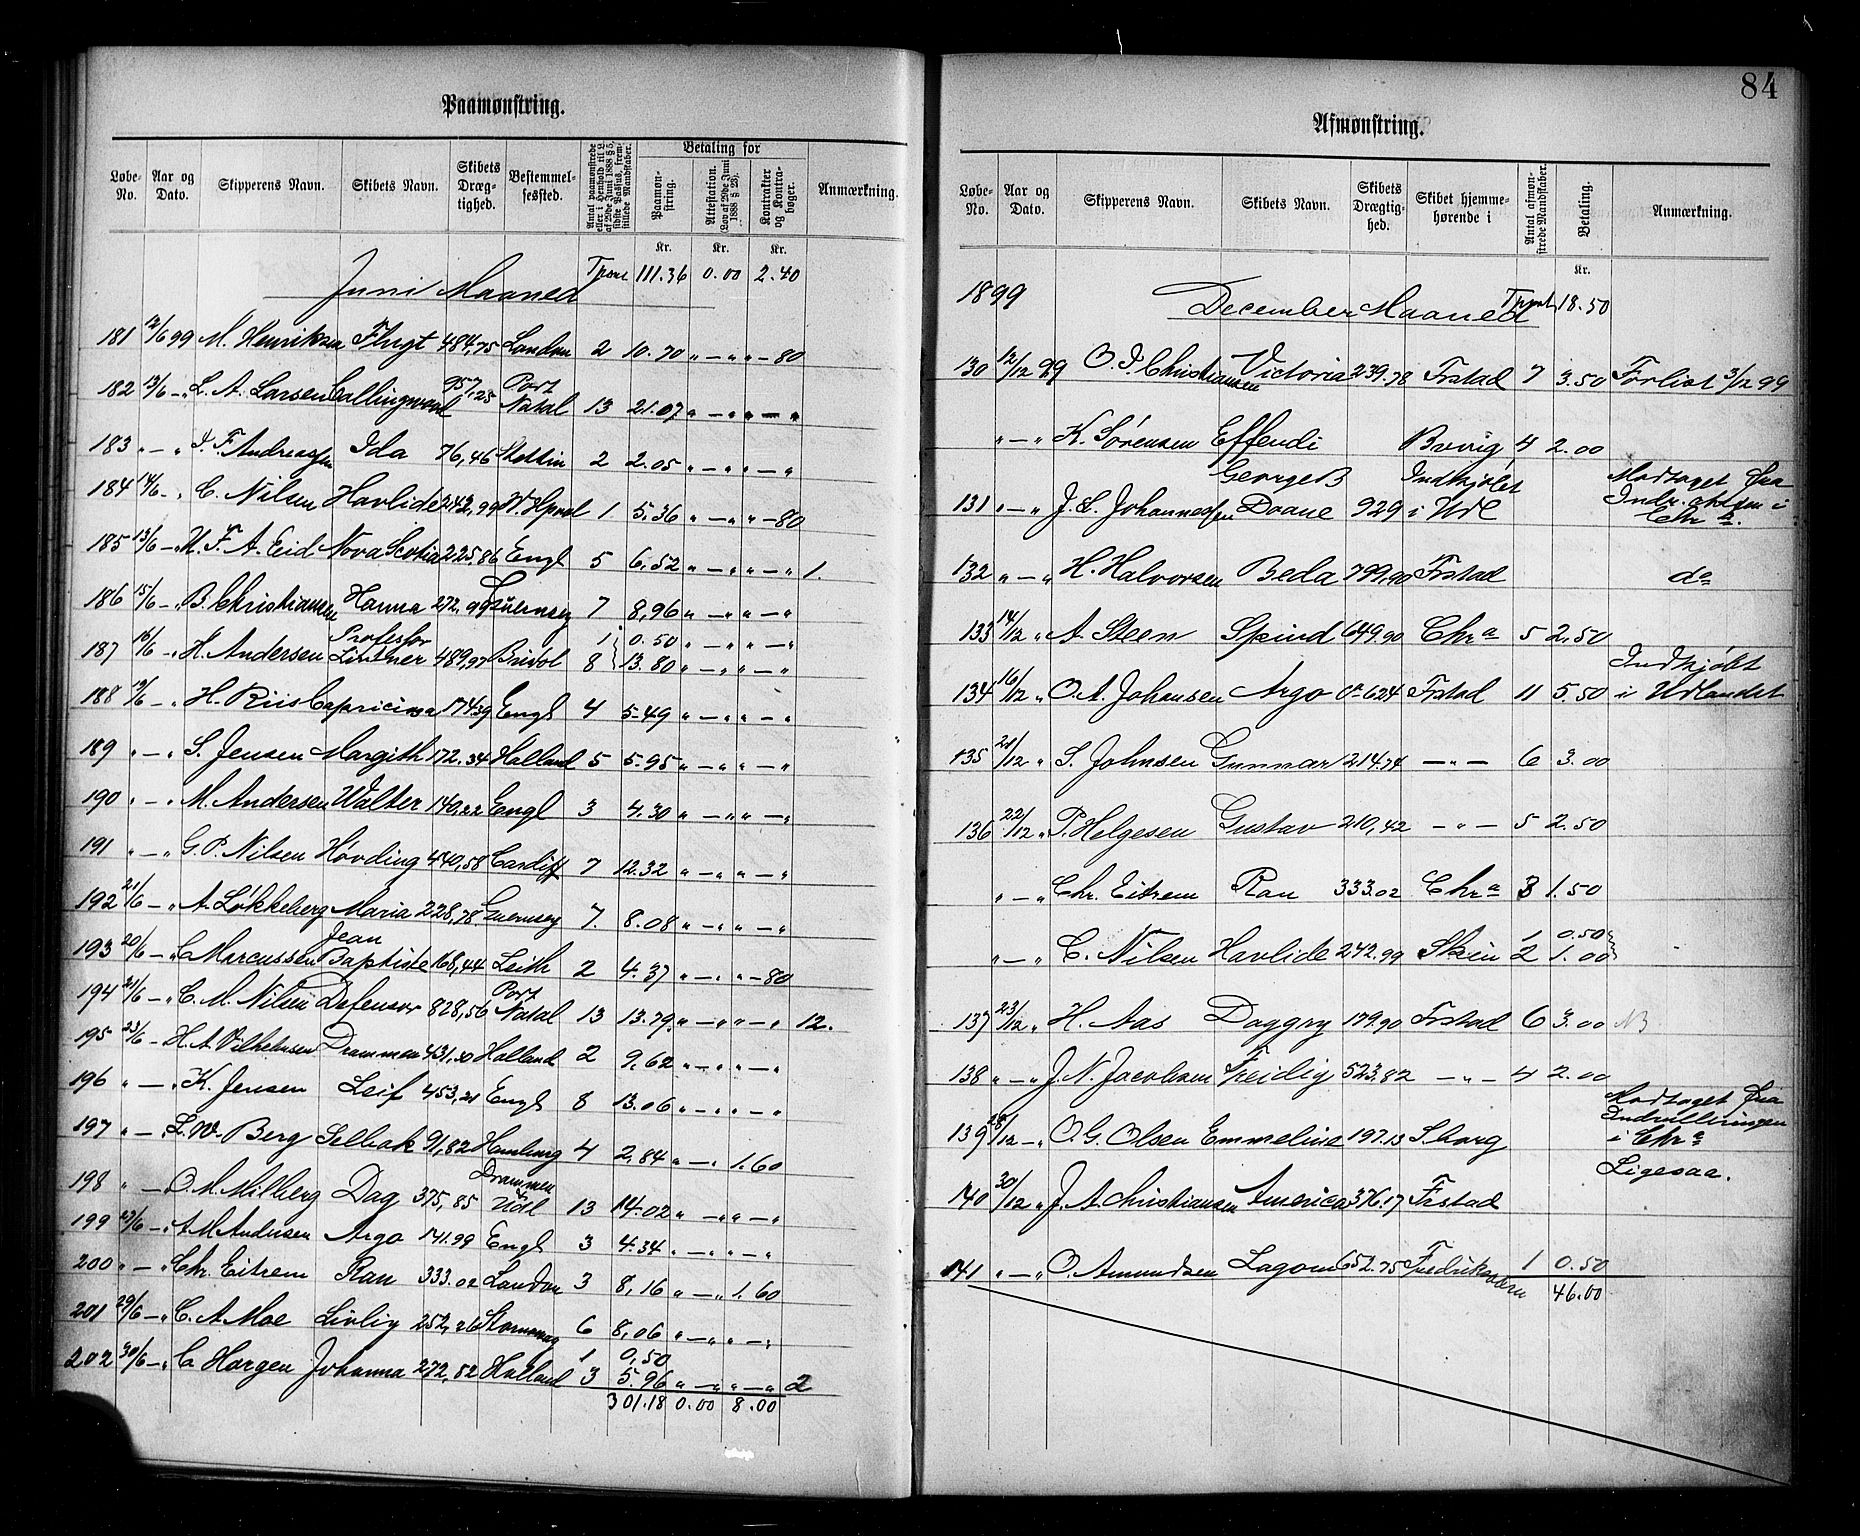 84
Paamønstring.
Løbe-No. Aar og Dato. Skipperens Navn. Skibets Navn. Skibets Dræg-tighed. Bestemmel-sessted. Antal paamønstrede eller i Henhold til L. af 29de Juni 1888 § 5, sidste Passus, frem-stillede Mandskaber. Betaling for Paamøn-string. Attestation. (Lov af 29de Juni 1888 § 23). Kontrakter og Kontra-bøger. Anmærkning.
Kr. Kr. Kr.
Juni Maaned Tport 111.36 0.00 2.40
181 12/6 99 M. Henriksen Flugt 484,75 London 2 10.70 " — " " — 80
182 13/6 — " L. A. Larsen Collingwood 957,25 Port Natal 13 21.07 " — " " — "
183 " — " J. F. Andreassen Ida 76,46 Stettin 2 2.05 " — " " — "
184 14/6 — " C. Nilsen Havlide 242,99 W. Hpool 1 5.36 " — " " — 80
185 13/6 — " M. F. A. Eid Nova Scotia 225.86 Engl 5 6,52 " — " " — " 1.
186 15/6 — " B. Christiansen Hanna 272,99 Guernsey 7 8,96 " — " " — "
1 0.50 " — " " — "
187 16/6 — " H. Andersen Professor Lintner 489,97 Bristol 8 13.80 " — " " — "
188 19/6 — " H. Riis Capricina 174.39 Engl 4 5.49 " — " " — "
189 " — " S. Jensen Margith 172.34 Holland 5 5.95 " — " " — "
190 " — " M. Andersen Walter 140,22 Engl 3 4.30 " — " " — "
191 " — " G. P. Nilsen Høvding 440,58 Cardiff 7 12.32 " — " " — "
192 21/6 — " A. Løkkeberg Maria 228,78 Guernsey 7. 8.08 " — " " — "
193 20/6 — " C Marcussen Jean Baptiste 168,44 Leith 2 4.37 " — " " — 80
194 21/6 — " C. M. Nilsen Defensor 828,56 Port Natal 13 13.79 " — " " — " 12.
195 23/6 — " H. A. Vilhelmsen Drammen 431,30 Holland 2 9,62 " — " " — "
196 " — " K. Jensen Leif 453,21 Engl 8 13.06 " — " " — "
197 " — " L. W. Berg Selbak 91,82 Hamburg 4 2,84 " — " 1.60
198 " — " O. M. Milberg Dag 375,85 Drammen Udl 13 14.02 " — " " — "
199 27/6 — " A. M. Andersen Argo 141.99 Engl 3 4.34 " — " " — "
200 " — " Chr. Eitrem Ran 333.02 London 3 8,16 " — " 1.60
201 29/6 — " C. A. Moe Livlig 252,26 Stornoway 6 8,06 " — " " — "
1 0,50
202 30/6 — " C. Horgen Johanna 272,52 Holland 3 5.96 " — " " — " 2
301.18 0.00 8.00
Afmønstring.
Løbe-No. Aar og Dato. Skipperens Navn. Skibets Navn. Skibets Drægtig-hed. Skibet hjemme-hørende i Antal afmøn-strede Mandskaber. Betaling. Anmærkning.
Kr.
1899 December Maaned Tport 18.50
130 12/12 99 O. J. Christiansen Victoria 239.78 Frstad 7 3.50 Forlist 3/12 99
" — " K. Sørensen Effendi Brvig 4 2.00
131 " — " J. L. Johannessen George B Doane 929 Indkjøbt i Udl Modtaget fra Indr. chefen i Chr a.
132 " — " H. Halvorsen Beda 799.90 Frstad do
133 14/12 " A. Steen Spind 649.90 Chr a 5 2,50
134 16/12 " O. A. Johansen Argo Ca 624 Frstad 11 5.50 Indkjøbt i Udlandet
135 21/12 " S. Johnsen Gunnar 214.74 — " — 6 3.00
136 22/12 " P. Helgesen Gustav 210,42 — " — 5 2.50
" — " Chr. Eitrem Ran 333.02 Chr a 3 1.50
1 0.50
" — " C. Nilsen Havlide 242.99 Skien 2 1.00
137 23/12 " H. Aas Daggry 179.90 Frstad 6 3.00 NB
138 " — " J. N. Jacobsen Freidig 523.82 — " — 4 2.00
139 28/12 — " O. G. Olsen Emmeline 197.13 S.borg Modtaget fra Indrulleringen i Chr a
140 30/12 " J. A. Christiansen America 376.17 Frstad Ligesaa.
141 " — " O. Amundsen Lagom 652.75 Fredriksværn 1 0.50
46.00